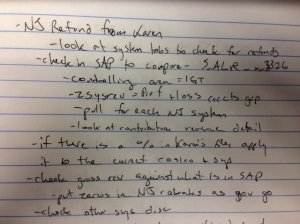 - NJ Refund from Karen
- look at system tabs to check for refunds
- check in SAP to compare - S_ALR_ 3326
- controlling area = IGT
- zsysrev = Prof + loss grp
- pull for each NJ system
- look at contribution revenue detail
- if there is a % in Karen's files apply
it to the correct casino + sys
- check gross rev against what is in SAP
put zeros in NJ rebates as you go
- check other sys disc